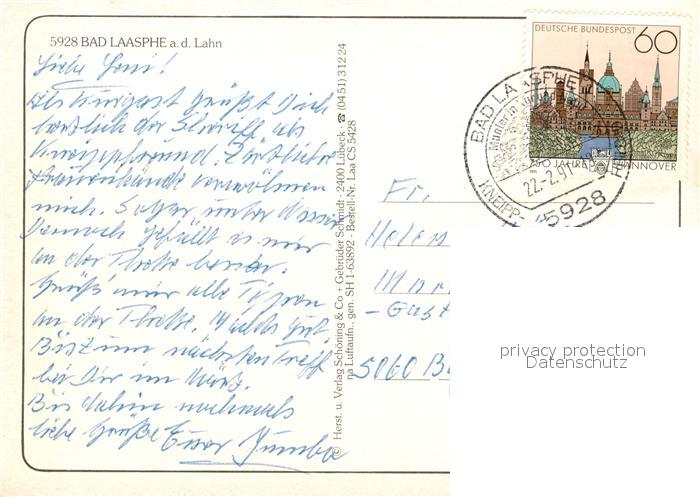 5928 BAD LAASPHE a.d. Lahn
Liebe Leni!
Als Kurgast grüßt Dich
herzlich der Sheriff als
Kneippfreund. Zärtliche
Frauenhände verwöhnen
mich. Sogar unter Wasser
Dennoch gefällt es mir
an der Theke besser.
Grüß mir alle Typen
an der Theke. Machs gut.
Bis zum nächsten Treff
bei Dir im März.
Bis dahin nochmals
liebe Grüße Euer
© Herst. u. Verlag Schöning & Co + Gebrüder Schmidt · 2400 Lübeck · ☎ (04 51) 3 12 24
na Luftaufn., gen. SH 1-63892 - Bestell-Nr. Laa CS 5428
DEUTSCHE BUNDESPOST 60
750 JAHRE HANNOVER
BAD LAASPHE
22.-2.91
KNEIPP-
5928
Fr.
Helen
- Gast
5060 B
privacy protection
Datenschutz